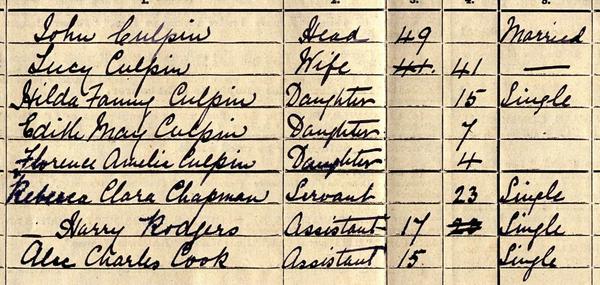 John Culpin Head 49 Married
Lucy Culpin Wife 41. 41 —
Hilda Fanny Culpin Daughter 15 Single
Edith May Culpin Daughter. 7
Florence Amelia Culpin Daughter 4
Rebecca Clara Chapman Servant 23 Single
— Harry Rodgers Assistant 17 Single
Alec Charles Cook Assistant 15. Single